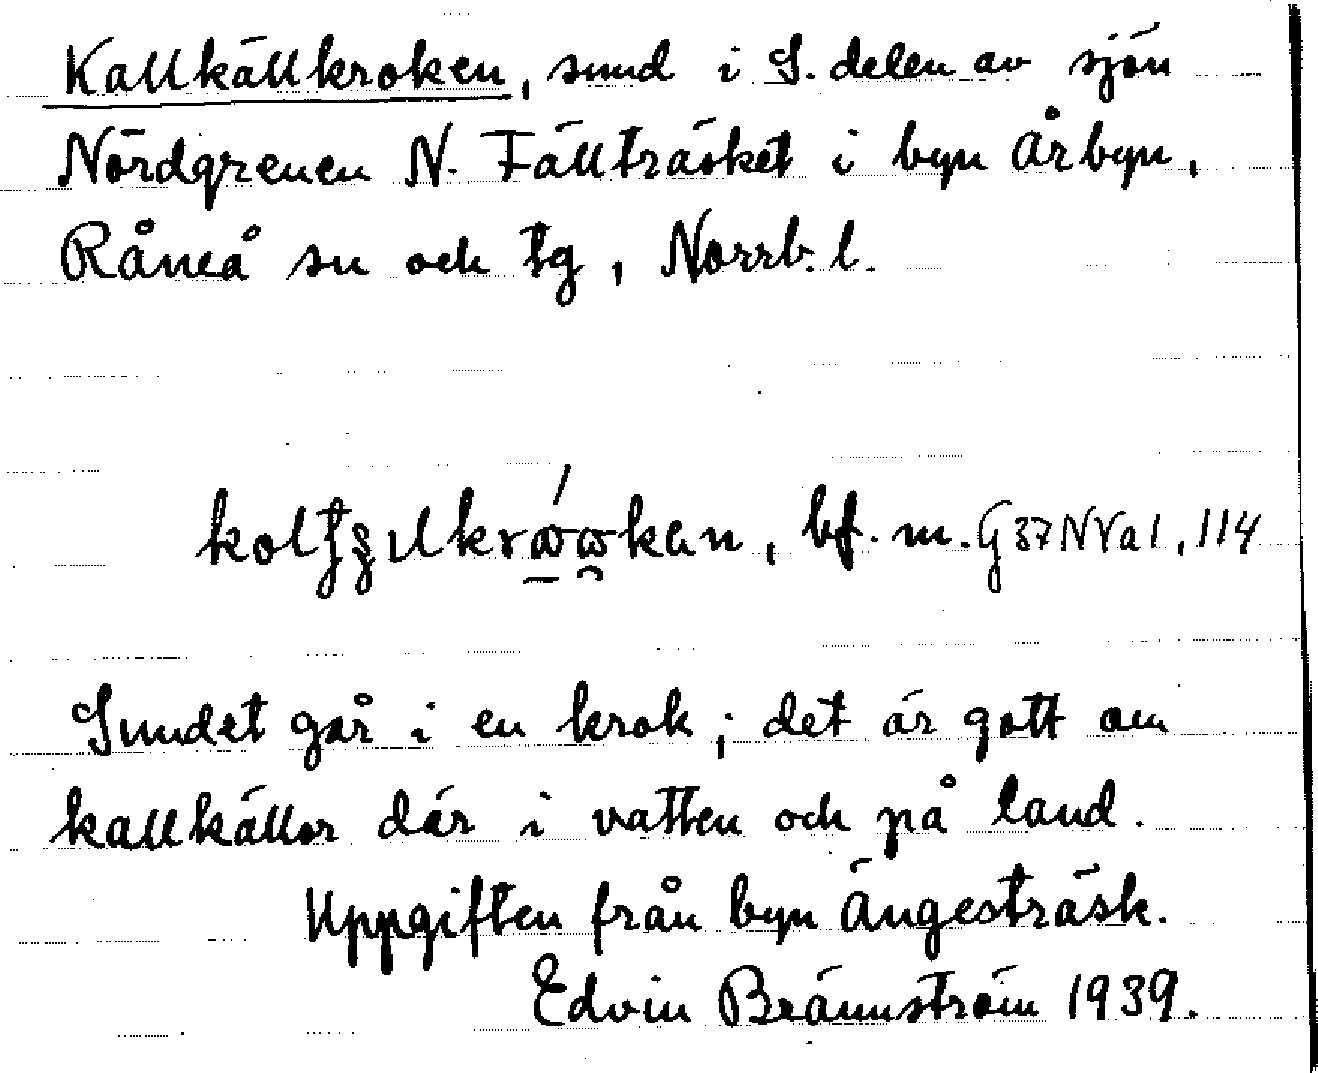 Kallkällkroken, sund i S. delen av sjön
Nördgrenen N. Fällträsket i byn Årbyn,
Råneå sn och tg, Norrb. l.
bf. m. G 37 NVa1, 114
Sundet går i en krok; det är gott om
kallkällor där i vatten och på land.
Uppgiften från byn Ängesträsk.
Edvin Brännström 1939.